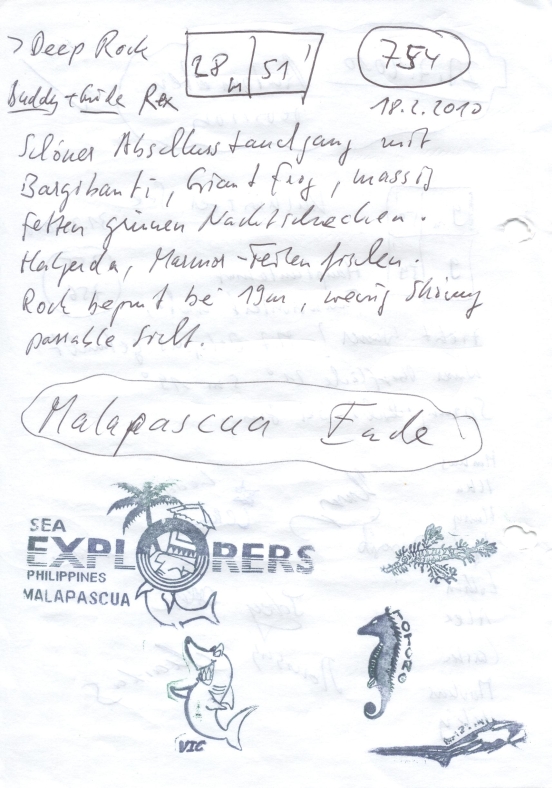 > Deep Rock
28m | 51'
754
Buddy + Guide Rex
18.2.2010
Schöner Abschlusstauchgang mit
Bargibanti, Giant Frog, massig
fetten grünen Nachtschnecken.
Halgerda, Marmor-Feilenfischen.
Rock beginnt bei 19m, wenig Strömung
passable Sicht.
Malapascua Ende
SEA
EXPLORERS
PHILIPPINES
MALAPASCUA
VIC